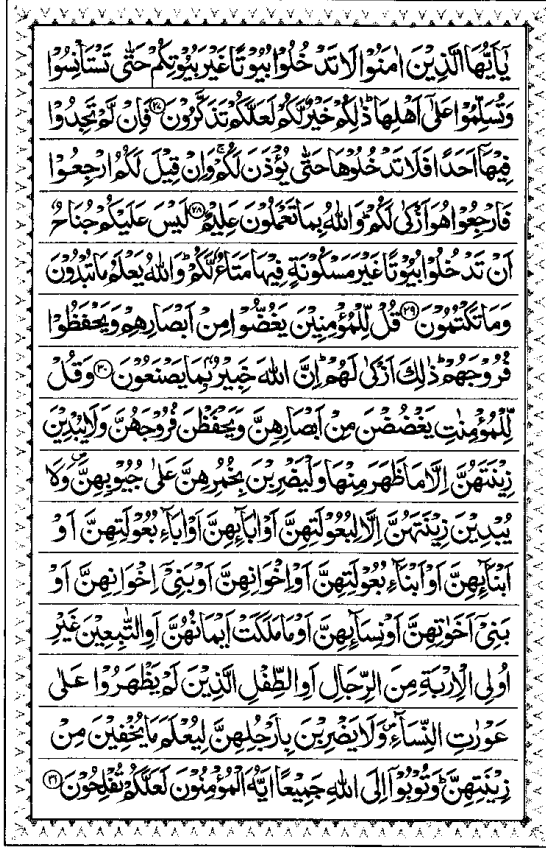 يٰٓاَيُّهَا الَّذِيْنَ اٰمَنُوْا لَا تَدْخُلُوْا بُيُوْتًا غَيْرَ بُيُوْتِكُمْ حَتّٰى تَسْتَاْنِسُوْا
وَتُسَلِّمُوْا عَلٰٓى اَهْلِهَا ؕ ذٰلِكُمْ خَيْرٌ لَّكُمْ لَعَلَّكُمْ تَذَكَّرُوْنَ ﴿۲۷﴾ فَاِنْ لَّمْ تَجِدُوْا
فِيْهَآ اَحَدًا فَلَا تَدْخُلُوْهَا حَتّٰى يُؤْذَنَ لَكُمْ ۚ وَاِنْ قِيْلَ لَكُمُ ارْجِعُوْا
فَارْجِعُوْا هُوَ اَزْكٰى لَكُمْ ؕ وَاللّٰهُ بِمَا تَعْمَلُوْنَ عَلِيْمٌ ﴿۲۸﴾ لَيْسَ عَلَيْكُمْ جُنَاحٌ
اَنْ تَدْخُلُوْا بُيُوْتًا غَيْرَ مَسْكُوْنَةٍ فِيْهَا مَتَاعٌ لَّكُمْ ؕ وَاللّٰهُ يَعْلَمُ مَا تُبْدُوْنَ
وَمَا تَكْتُمُوْنَ ﴿۲۹﴾ قُلْ لِّلْمُؤْمِنِيْنَ يَغُضُّوْا مِنْ اَبْصَارِهِمْ وَيَحْفَظُوْا
فُرُوْجَهُمْ ؕ ذٰلِكَ اَزْكٰى لَهُمْ ؕ اِنَّ اللّٰهَ خَبِيْرٌۢ بِمَا يَصْنَعُوْنَ ﴿۳۰﴾ وَقُلْ
لِّلْمُؤْمِنٰتِ يَغْضُضْنَ مِنْ اَبْصَارِهِنَّ وَيَحْفَظْنَ فُرُوْجَهُنَّ وَلَا يُبْدِيْنَ
زِيْنَتَهُنَّ اِلَّا مَا ظَهَرَ مِنْهَا وَلْيَضْرِبْنَ بِخُمُرِهِنَّ عَلٰى جُيُوْبِهِنَّ ۪ وَلَا
يُبْدِيْنَ زِيْنَتَهُنَّ اِلَّا لِبُعُوْلَتِهِنَّ اَوْ اٰبَآئِهِنَّ اَوْ اٰبَآءِ بُعُوْلَتِهِنَّ اَوْ
اَبْنَآئِهِنَّ اَوْ اَبْنَآءِ بُعُوْلَتِهِنَّ اَوْ اِخْوَانِهِنَّ اَوْ بَنِيْٓ اِخْوَانِهِنَّ اَوْ
بَنِيْٓ اَخَوٰتِهِنَّ اَوْ نِسَآئِهِنَّ اَوْ مَا مَلَكَتْ اَيْمَانُهُنَّ اَوِ التّٰبِعِيْنَ غَيْرِ
اُولِى الْاِرْبَةِ مِنَ الرِّجَالِ اَوِ الطِّفْلِ الَّذِيْنَ لَمْ يَظْهَرُوْا عَلٰى
عَوْرٰتِ النِّسَآءِ ۪ وَلَا يَضْرِبْنَ بِاَرْجُلِهِنَّ لِيُعْلَمَ مَا يُخْفِيْنَ مِنْ
زِيْنَتِهِنَّ ؕ وَتُوْبُوْٓا اِلَى اللّٰهِ جَمِيْعًا اَيُّهَ الْمُؤْمِنُوْنَ لَعَلَّكُمْ تُفْلِحُوْنَ ﴿۳۱﴾